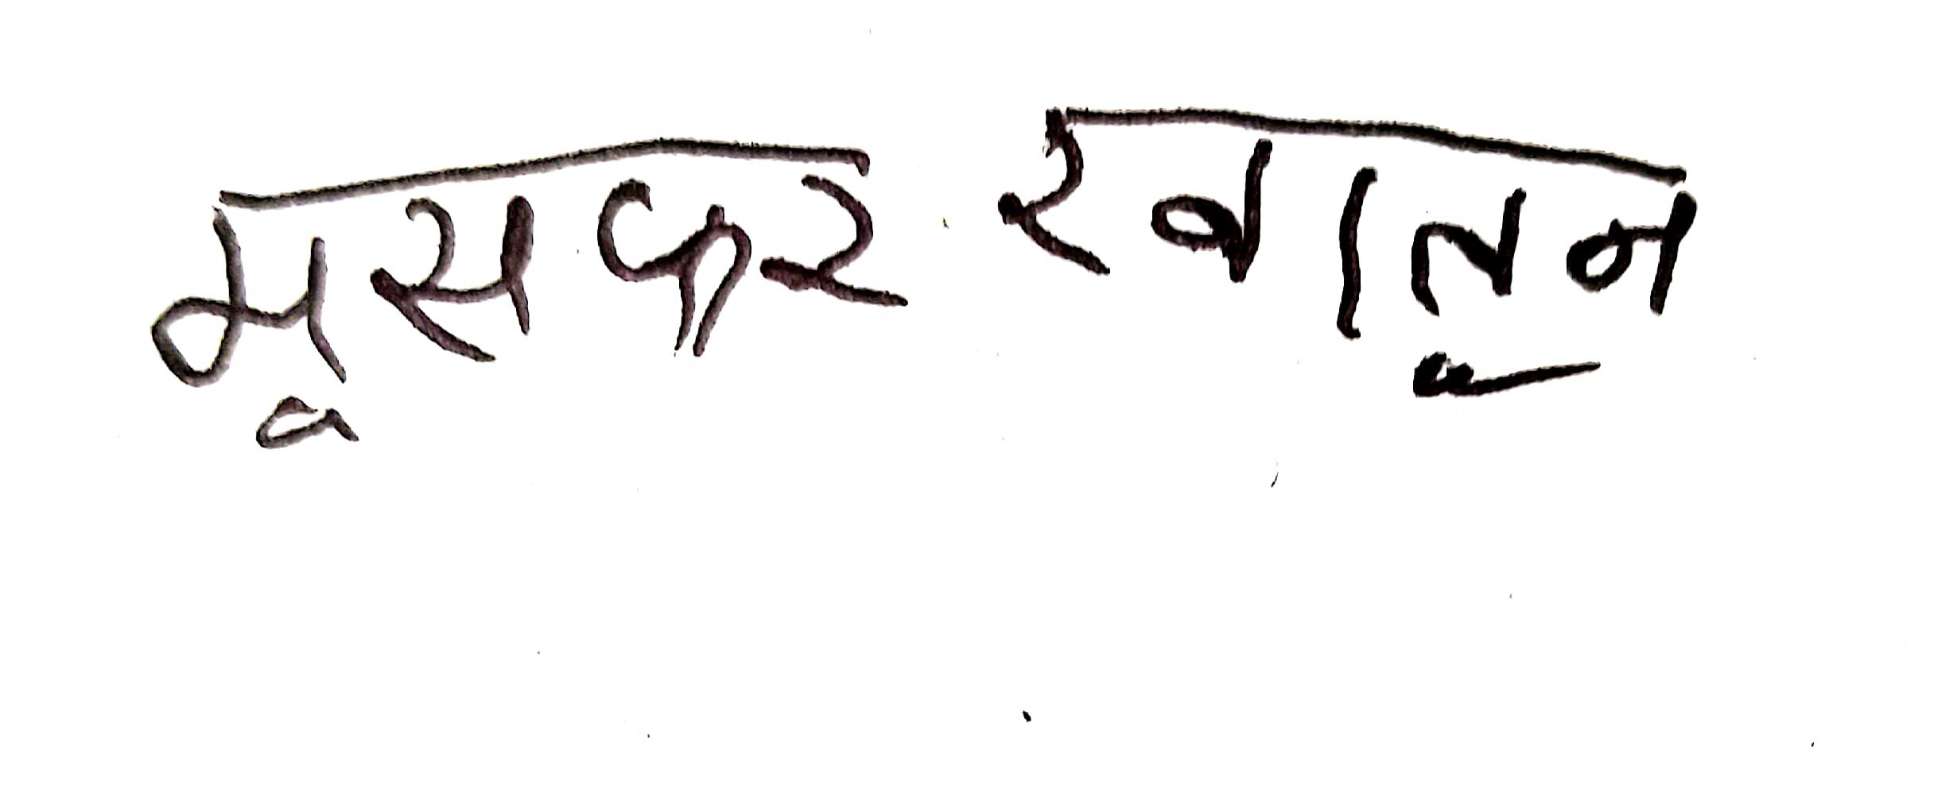 मूसकर खातून